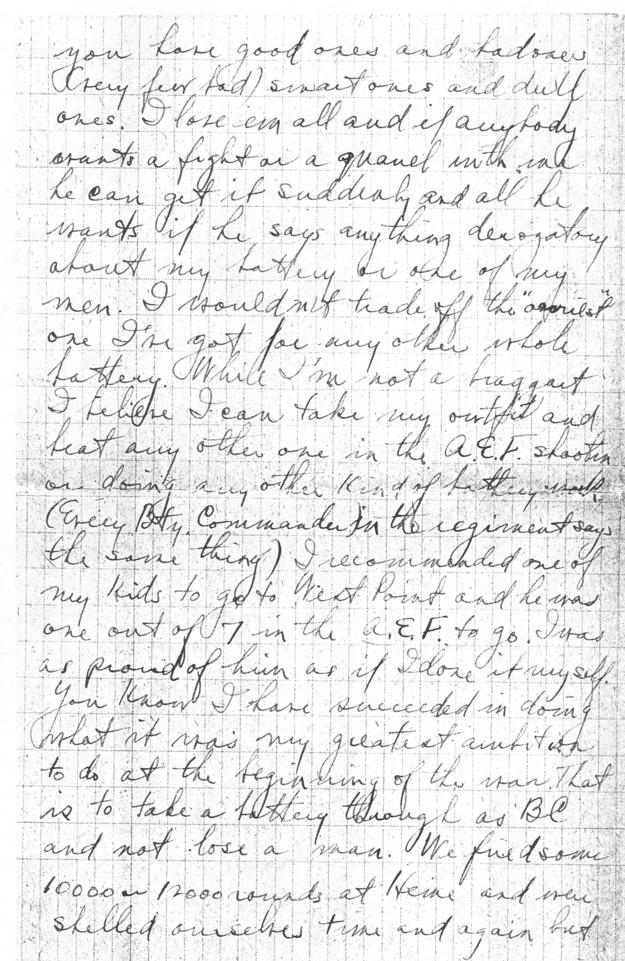 you have good ones and bad ones
(very few bad) smart ones and dull
ones. I love em all and if anybody
wants a fight or a quarrel with me
he can get it suddenly and all he
wants if he says anything derogatory
about my battery or one of my
men. I wouldn't trade off the "orneriest"
one I've got for any other whole
battery. While I'm not a braggart
I believe I can take my outfit and
beat any other one in the A.E.F. shootin
or doing any other kind of battery work.
(Every Bty. Commander in the regiment says
the same thing) I recommended one of
my kids to go to West Point and he was
one out of 7 in the A.E.F. to go. I was
as proud of him as if I done it myself.
You Know I have succeeded in doing
what it was my greatest ambition
to do at the beginning of the war. That
is to take a battery through as BC
and not lose a man. We fired some
10000 or 12000 rounds at Heinie and were
shelled ourselves time and again but